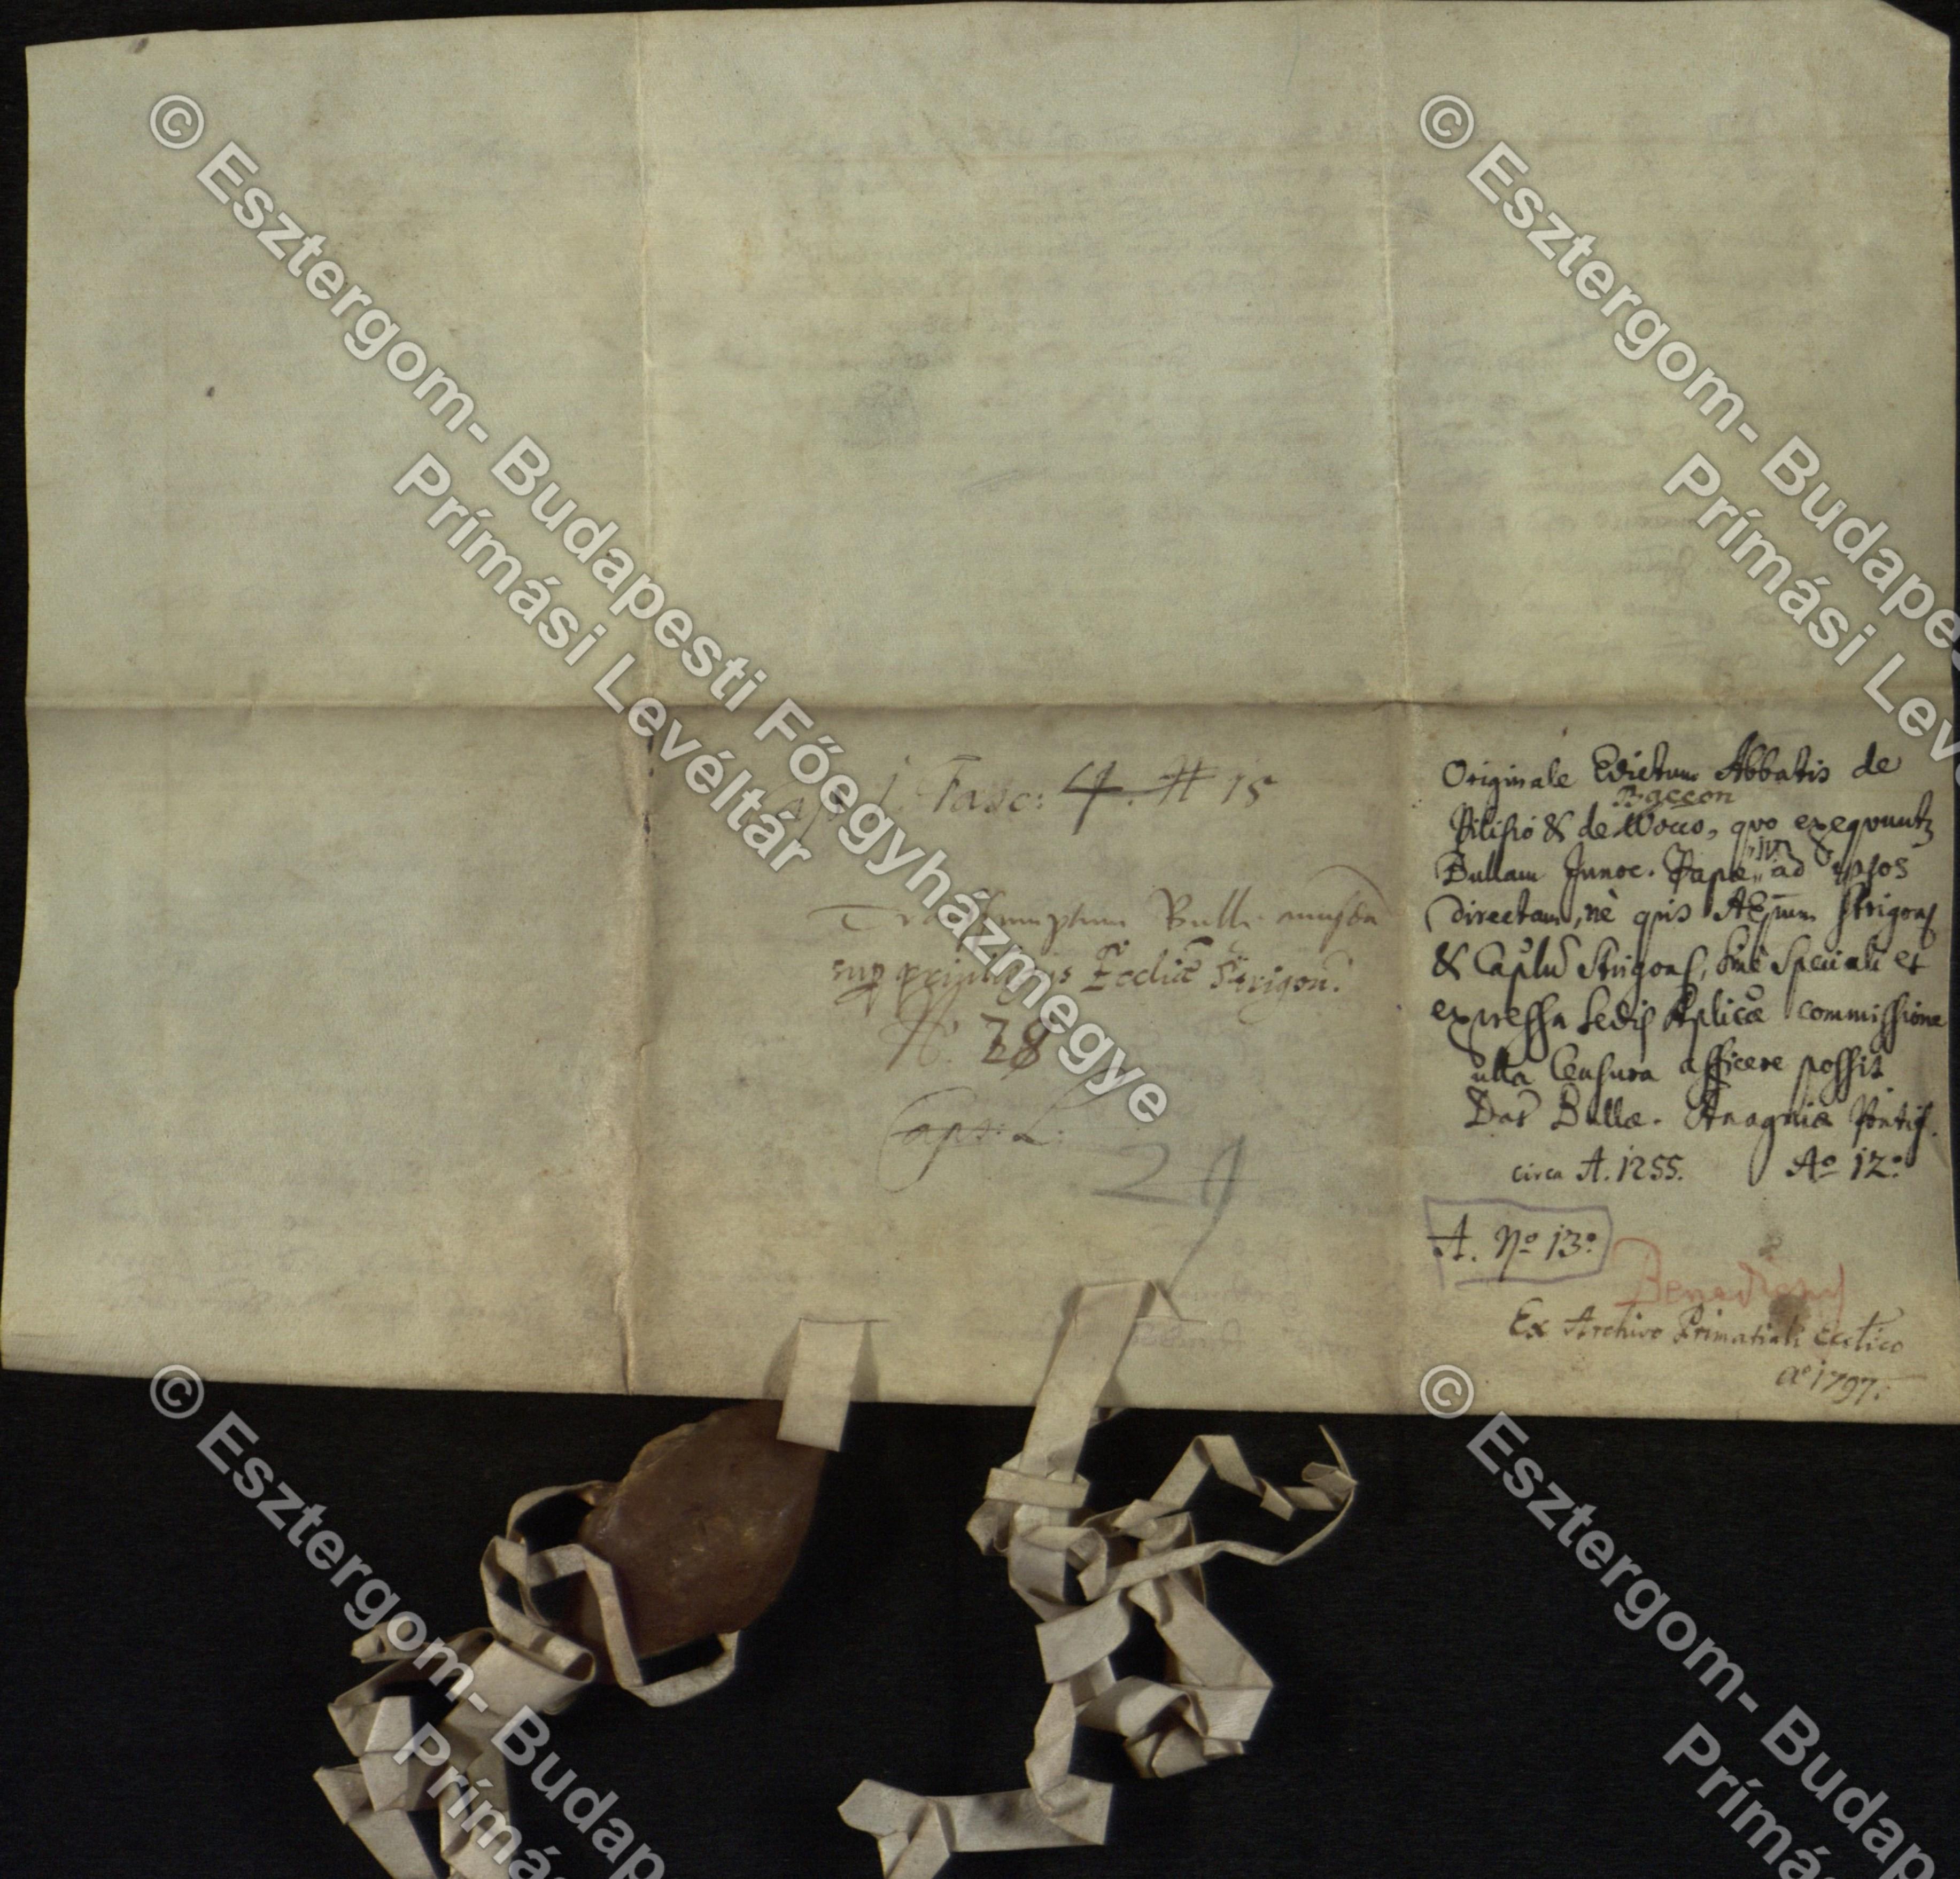 © Esztergom- Budapesti Főegyházmegye
Prímási Levéltár
© Esztergom- Budapes
Prímási Lev
Fasc: 4. # 15
Bulle
Ecclie Strigon.
N. 28
Caps: L:
29
Originale Edictum Abbatis de
Baccon
Pilisio & de Wocco, quo exequuntr
IV
Bullam Innoc. Papæ, ad ipsos
directam, nè quis AEpum Strigons
& Caplum Strigons, sine speciali et
expressa Sedis Aplicæ commissione
ulla Censura afficere possit
Dat Bullæ. Anagniæ Pontif.
circa A. 1255. Ao 12o
A. No 13o
Ex Archivo Primatiali Ecclico
ao 1797.
© Esztergom- Budap
Prímás
© Esztergom- Budap
Prímás